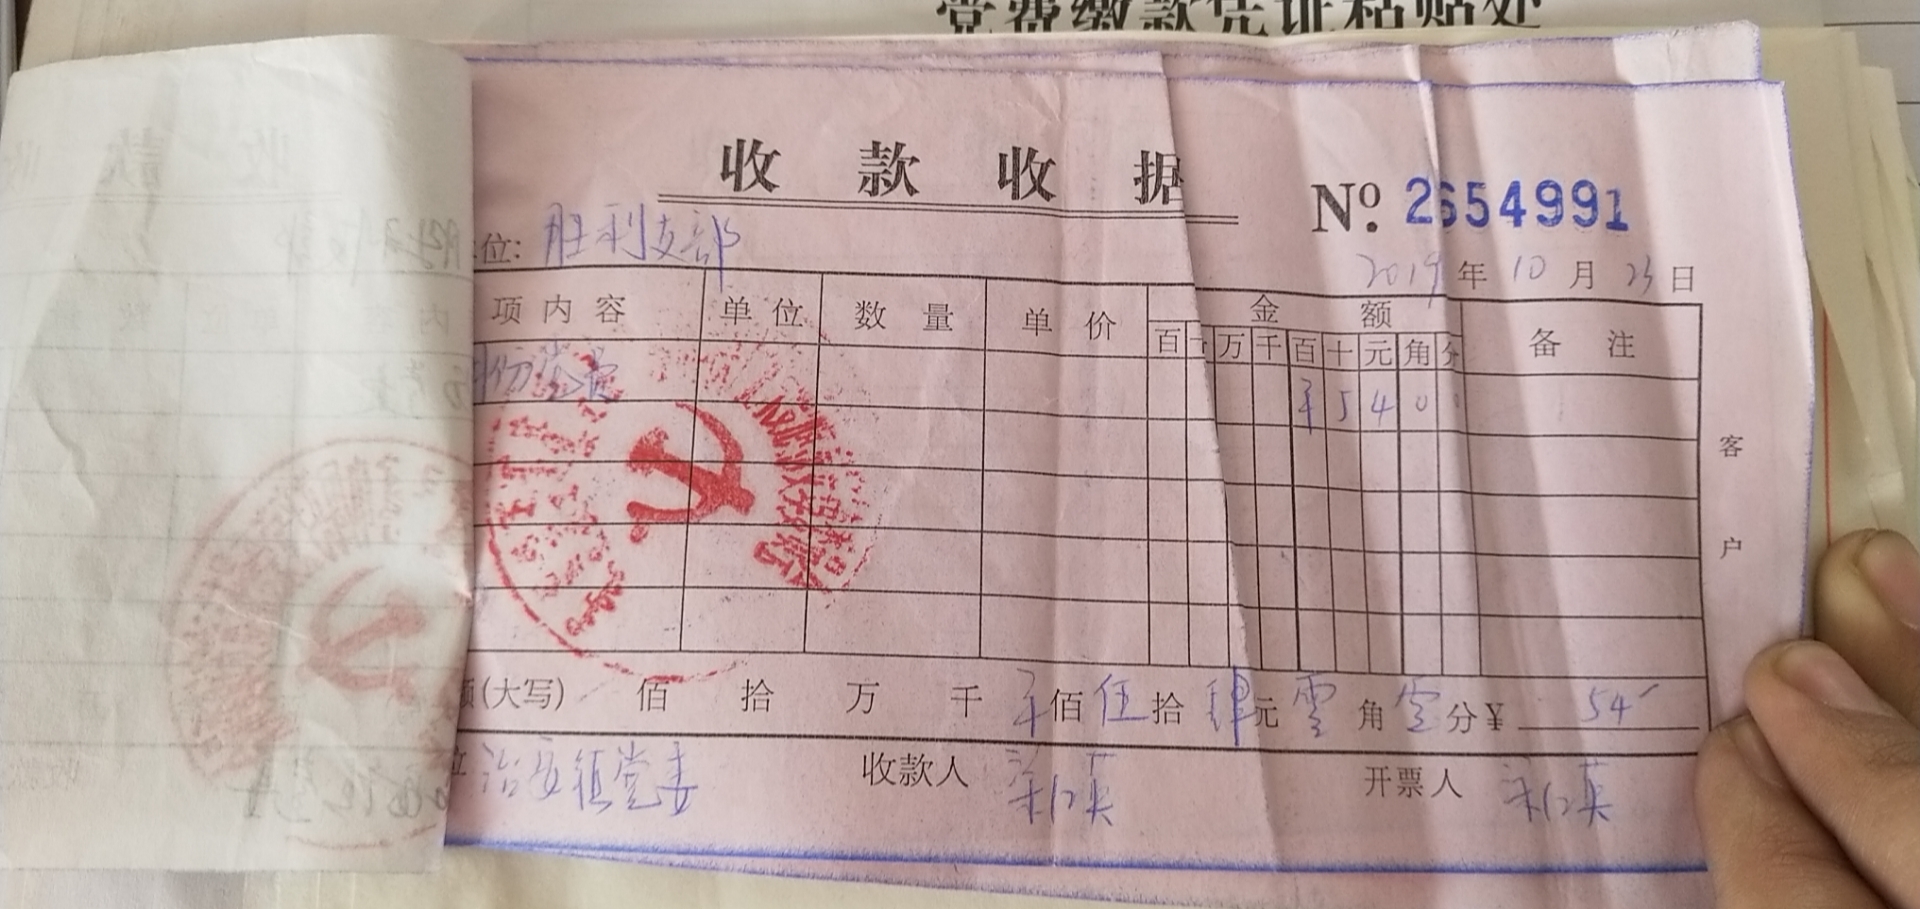 党费缴款凭证粘贴处
收款收据
No. 2654991
位: 胜利支部
2019年10月23日
项内容 单位 数量 单价 金额 备注
百 十 万 千 百 十 元 角 分
月份党费 ¥ 5 4 0 0
客户
额(大写) 佰 拾 万 千 ¥佰 伍拾 肆元 零角 零分 ¥ 54
位 治安镇党委 收款人 开票人